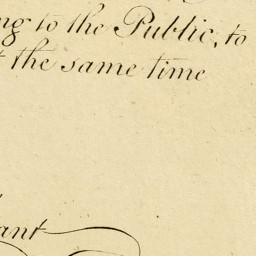 ng to the Public, to
t the same time
ant